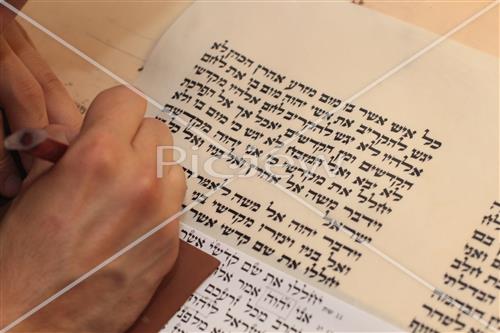 כל איש אשר בו מום מזרע אהרן הכהן לא
יגש להקריב את אשי יהוה מום בו את לחם
אלהיו לא יגש להקריב לחם אלהיו מקדשי
הקדשים ומן הקדשים יאכל אך אל הפרכת
לא יבא ואל המזבח לא יגש כי מום בו ולא
יחלל את מקדשי כי אני יהוה מקדשם
וידבר משה אל אהרן ואל בניו ואל
ישראל
וידבר יהוה אל משה לאמר
ואל בניו וינזרו מקדשי בני
יחללו את שם קדשי אשר
יחללו את שם קדשי אשר
אני יהוה אמר
PicJew